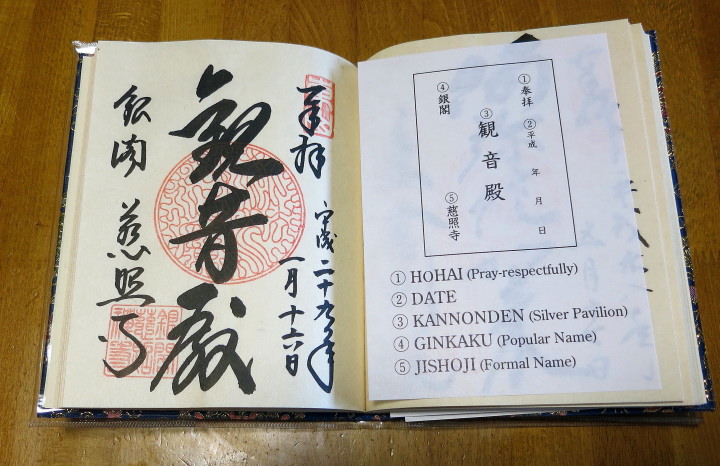 奉拝 平成二十九年
一月十六日
観音殿
銀閣 慈照寺
①奉拝 ②平成 年 月 日
③観音殿
④銀閣 ⑤慈照寺
① HOHAI (Pray-respectfully)
② DATE
③ KANNONDEN (Silver Pavilion)
④ GINKAKU (Popular Name)
⑤ JISHOJI (Formal Name)